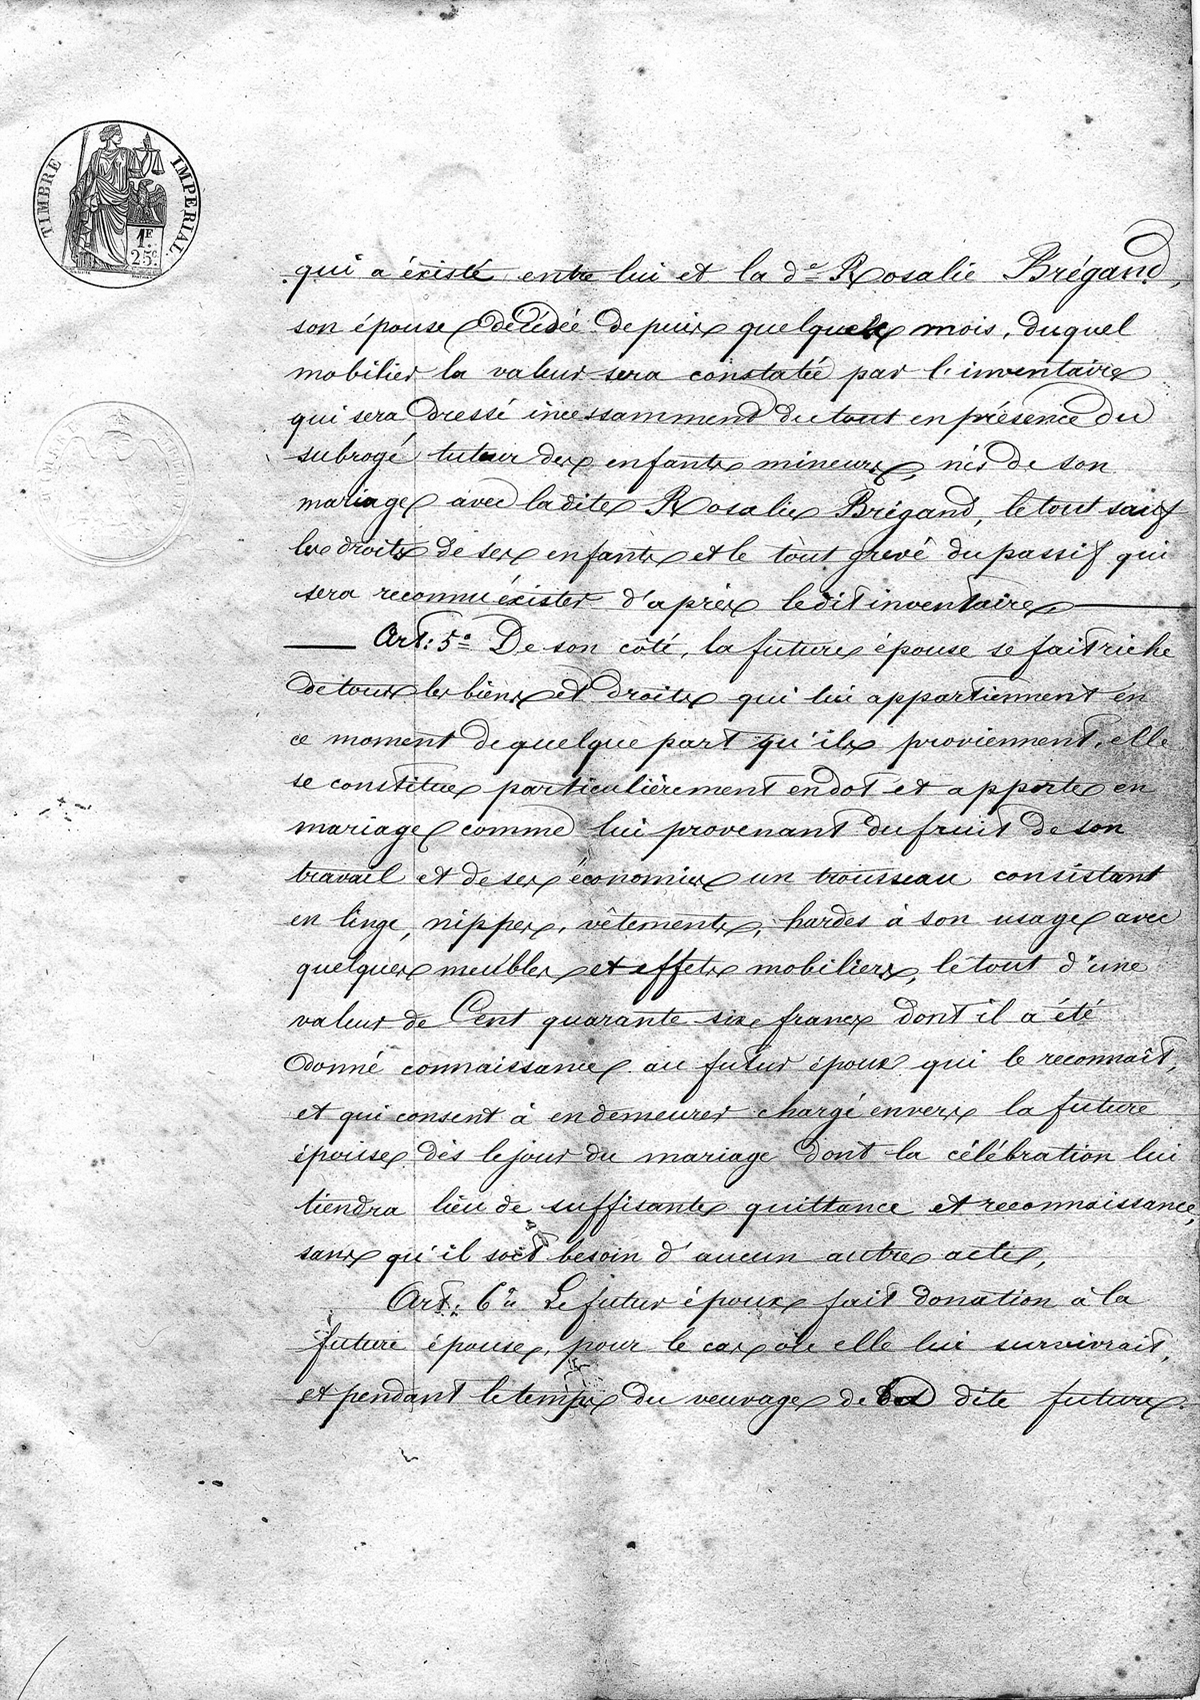 TIMBRE IMPÉRIAL
1F.
25c.
qui a éxisté entre lui et la de Rosalie Brégand,
son épouse décédée depuis quelques mois, duquel
mobilier la valeur sera constatée par l'inventaire
qui sera dressé incessamment du tout en présence du
subrogé tuteur des enfants mineurs, nés de son
mariage avec la dite Rosalie Brégand, le tout sauf
les droits de ses enfants et le tout grevé du passif qui
sera reconnu éxister d'après ledit inventaire
Art: 5e De son côté, la future épouse se fait riche
de tous les biens et droits qui lui appartiennent en
ce moment de quelque part qu'ils proviennent, elle
se constitue particulièrement en dot et apporte en
mariage comme lui provenant du fruit de son
travail et de ses économies un trousseau consistant
en linge, nippes, vêtements, hardes à son usage avec
quelques meubles et effets mobiliers, le tout d'une
valeur de Cent quarante six francs dont il a été
donné connaissance au futur époux qui le reconnaît,
et qui consent à en demeurer chargé envers la future
épouse dès le jour du mariage dont la célébration lui
tiendra lieu de suffisante quittance et reconnaissance,
sans qu'il soit besoin d'aucun autre acte,
Art: 6e Le futur époux fait donation à la
future épouse, pour le cas où elle lui survivrait,
et pendant le temps du veuvage de la dite future